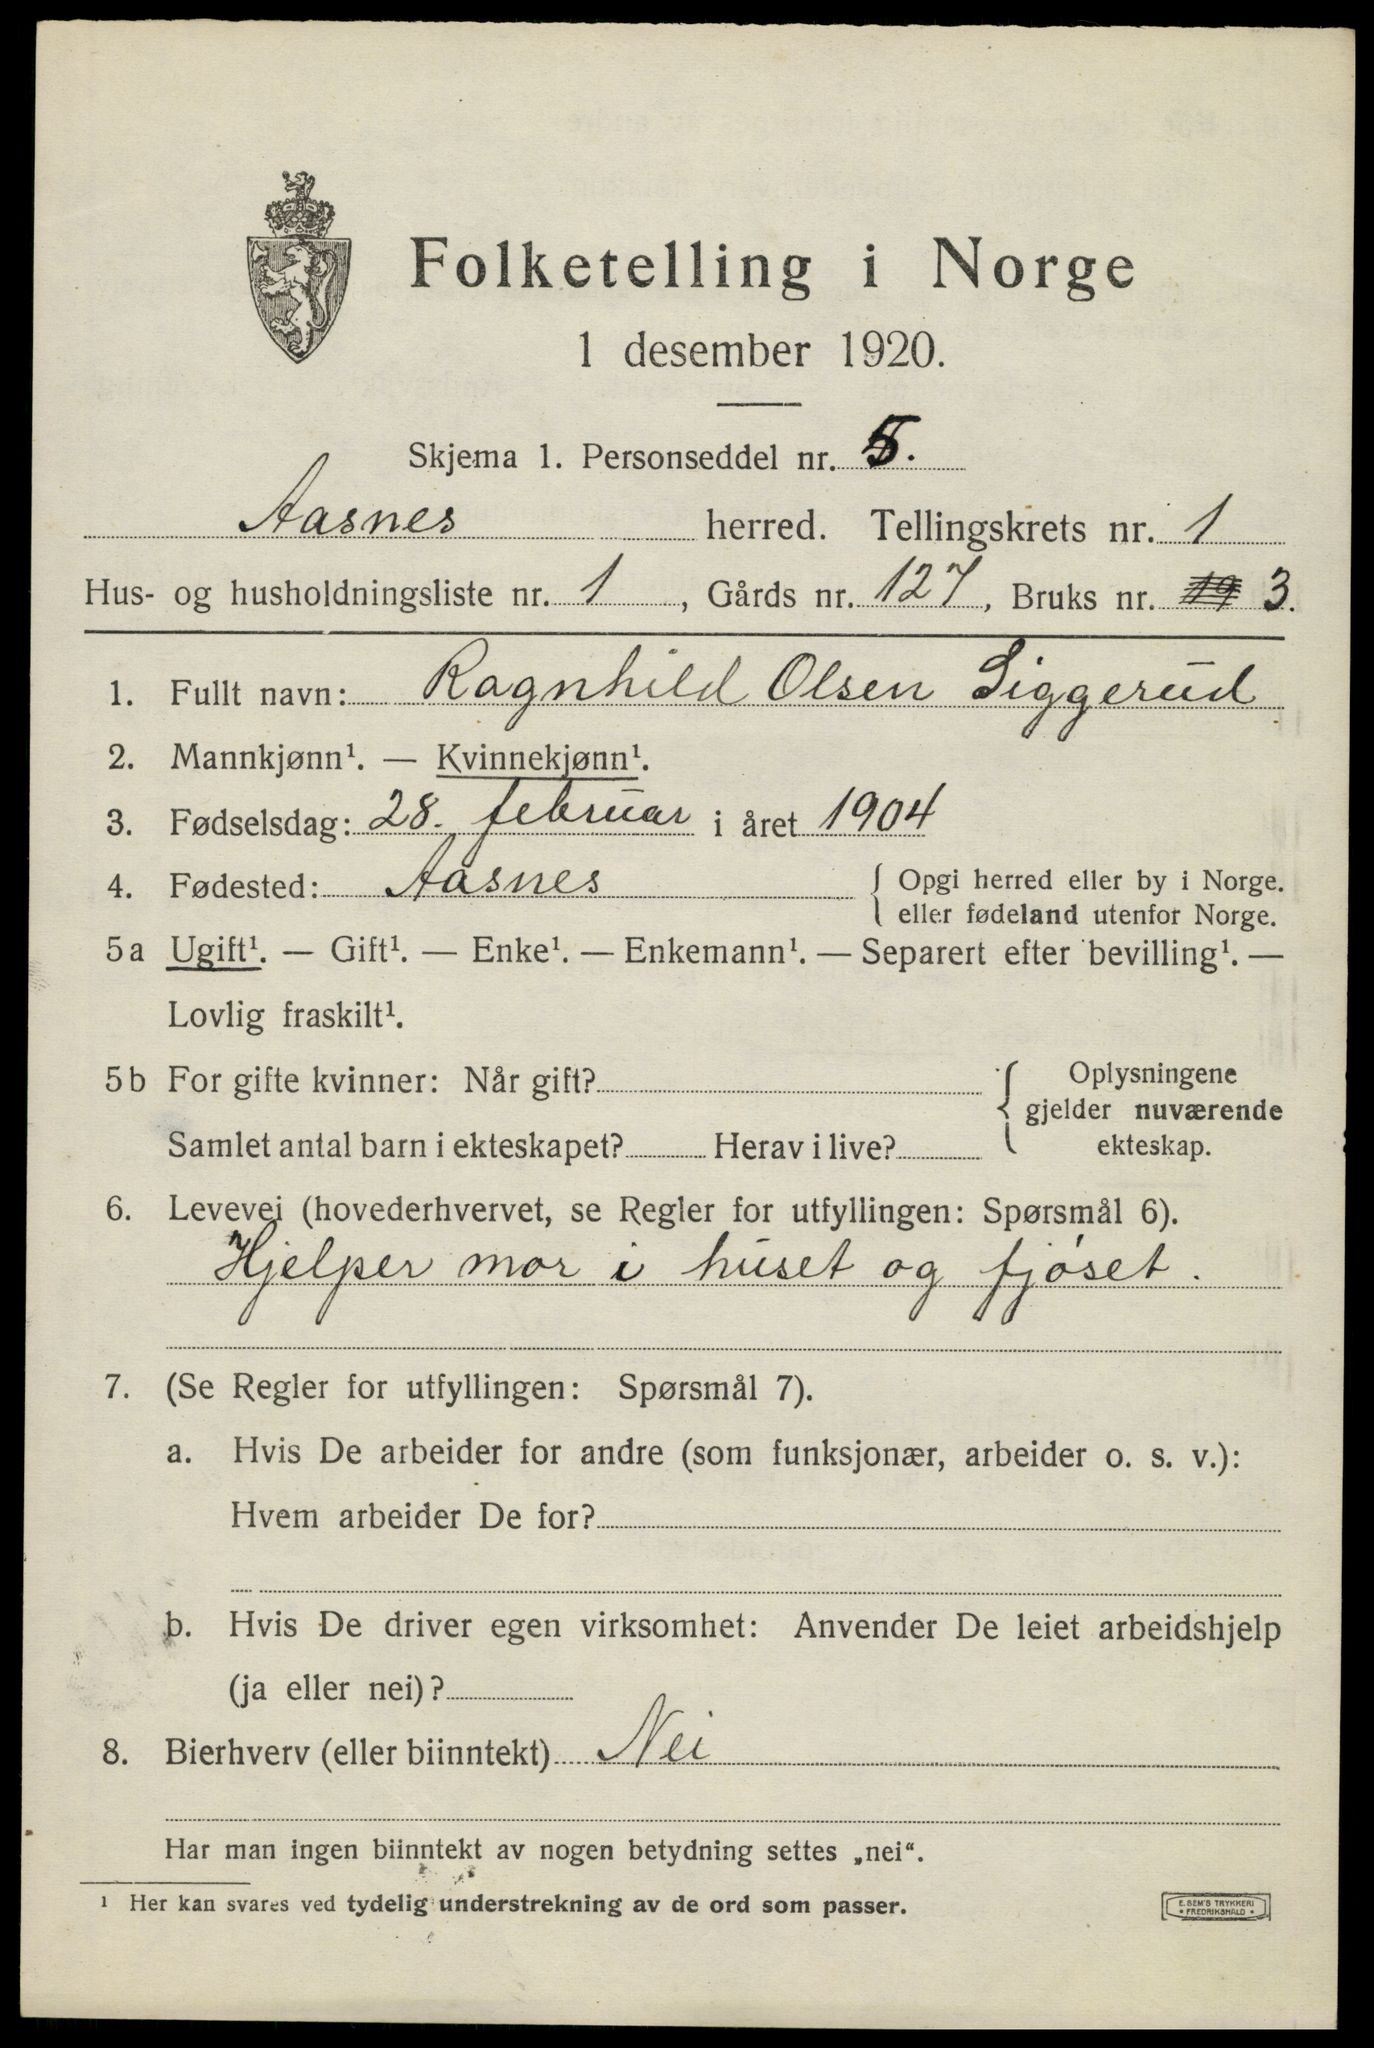 Folketelling i Norge
1 desember 1920.
Skjema 1. Personseddel nr. 5.
Aasnes herred. Tellingskrets nr. 1
Hus- og husholdningsliste nr. 1, Gårds nr. 127, Bruks nr. 19 3.
1. Fullt navn: Ragnhild Olsen Siggerud
2. Mannkjønn¹. — Kvinnekjønn¹.
3. Fødselsdag: 28. februar i året 1904
4. Fødested: Aasnes { Opgi herred eller by i Norge.
eller fødeland utenfor Norge.
5a Ugift¹. — Gift¹. — Enke¹. — Enkemann¹. — Separert efter bevilling¹. —
Lovlig fraskilt¹.
5b For gifte kvinner: Når gift? { Oplysningene
gjelder nuværende
Samlet antal barn i ekteskapet? Herav i live? ekteskap.
6. Levevei (hovederhvervet, se Regler for utfyllingen: Spørsmål 6).
Hjelper mor i huset og fjøset.
7. (Se Regler for utfyllingen: Spørsmål 7).
a. Hvis De arbeider for andre (som funksjonær, arbeider o. s. v.):
Hvem arbeider De for?
b. Hvis De driver egen virksomhet: Anvender De leiet arbeidshjelp
(ja eller nei)?
8. Bierhverv (eller biinntekt) Nei
Har man ingen biinntekt av nogen betydning settes „nei“.
¹ Her kan svares ved tydelig understrekning av de ord som passer.
E. SEM'S TRYKKERI
* FREDRIKSHALD *